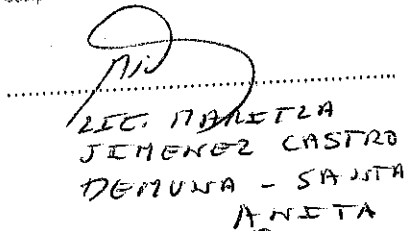 LIC. MARITZA
JIMENEZ CASTRO
DEMUNA - SANTA
ANITA